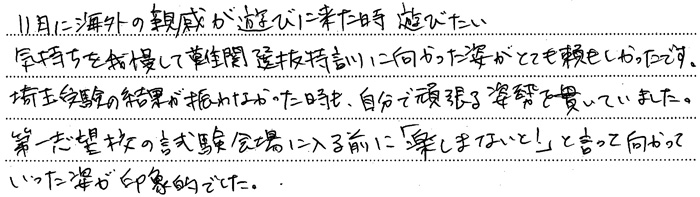 11月に海外の親戚が遊びに来た時 遊びたい
気持ちを我慢して難関選抜特訓に向かった姿がとても頼もしかったです。
埼玉受験の結果が振わなかった時も、自分で頑張る姿勢を貫いていました。
第一志望校の試験会場に入る前に「楽しまないと!」と言って向かって
いった姿が印象的でした。